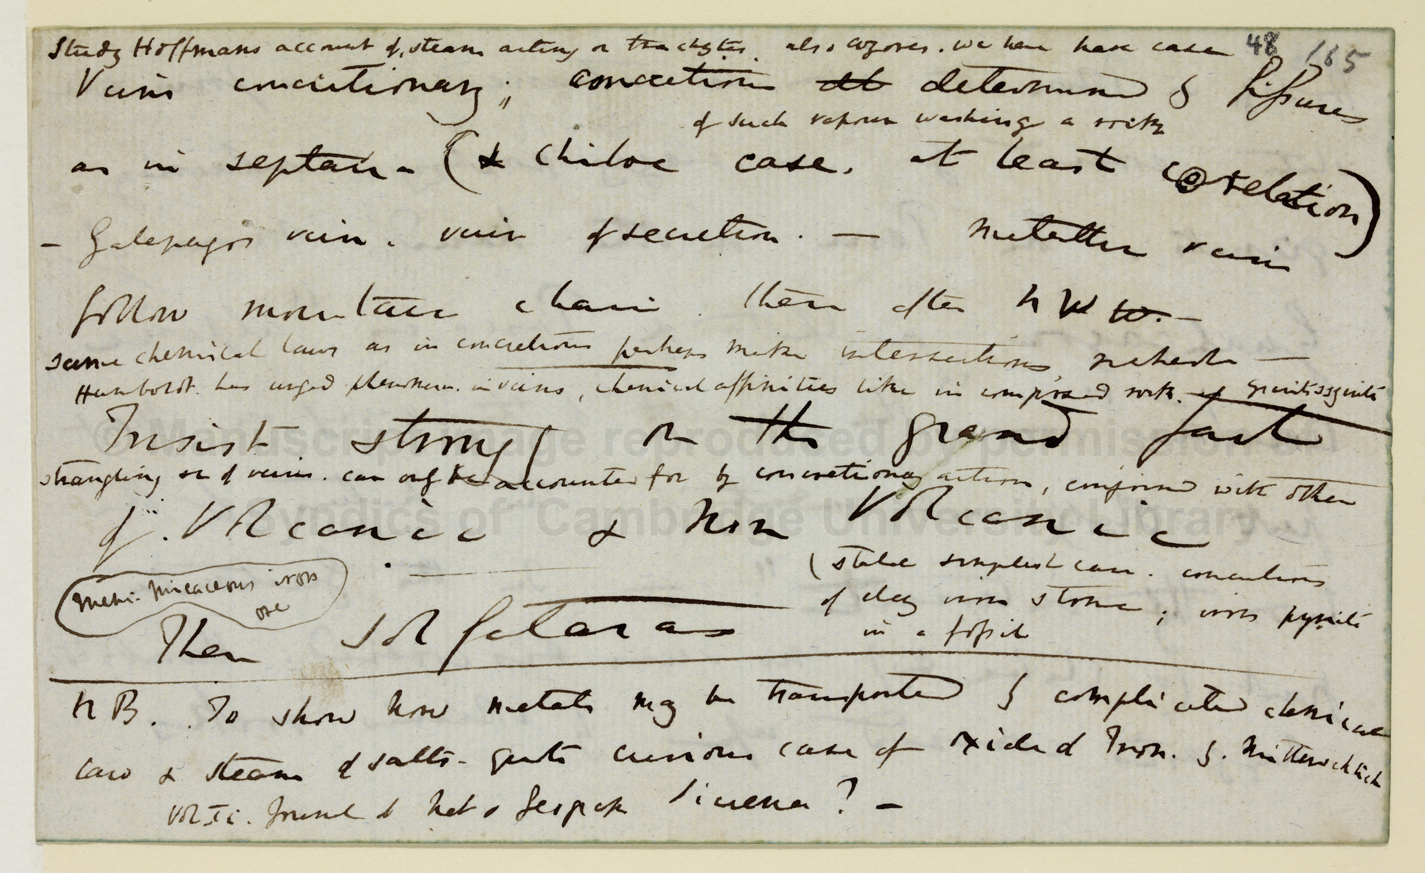 Study Hoffmans account of steam acting on trachytes. also azores. we here have case 48 165
Veins concretionary; concretion determined by fissures
of such vapour washing a rock
as in septaria (& Chiloe case. at least corelation)
— Galapagos vein. vein of secretion. — Metallic veins
follow mountain chain. then often NW
same chemical laws as in concretions perhaps make intersections, richest —
Humboldt. has urged phenomen. in veins, chemical affinities like in composed rock. of granite syenite
Insist strongly on the grand fact
strangling of veins. can only be accounted for by concretionary action, conjoined with other
of Volcanic & non Volcanic
(state simplest case. concretions
of clay iron stone; iron pyrites
in a fossil
Mem: Micaceous iron
ore
Then Solfataras
NB. To show how metals may be transported by complicated chemical
law & steam of salts — quote curious case of oxide of Iron. by. Mitterschlich
Vol II. Journal of Nat & Geograph Science? —